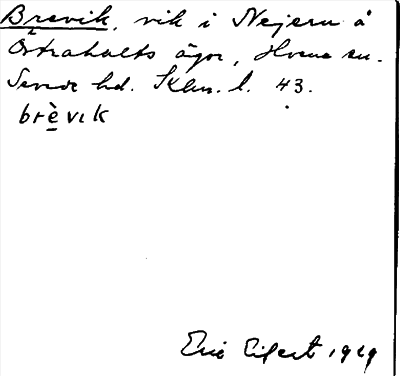 Brevik, vik i Nejern å
Östrahults ägor, Hvena sn.
Sevede hd. Klm. l. 43.
brèvik
Eric Elfert 1929